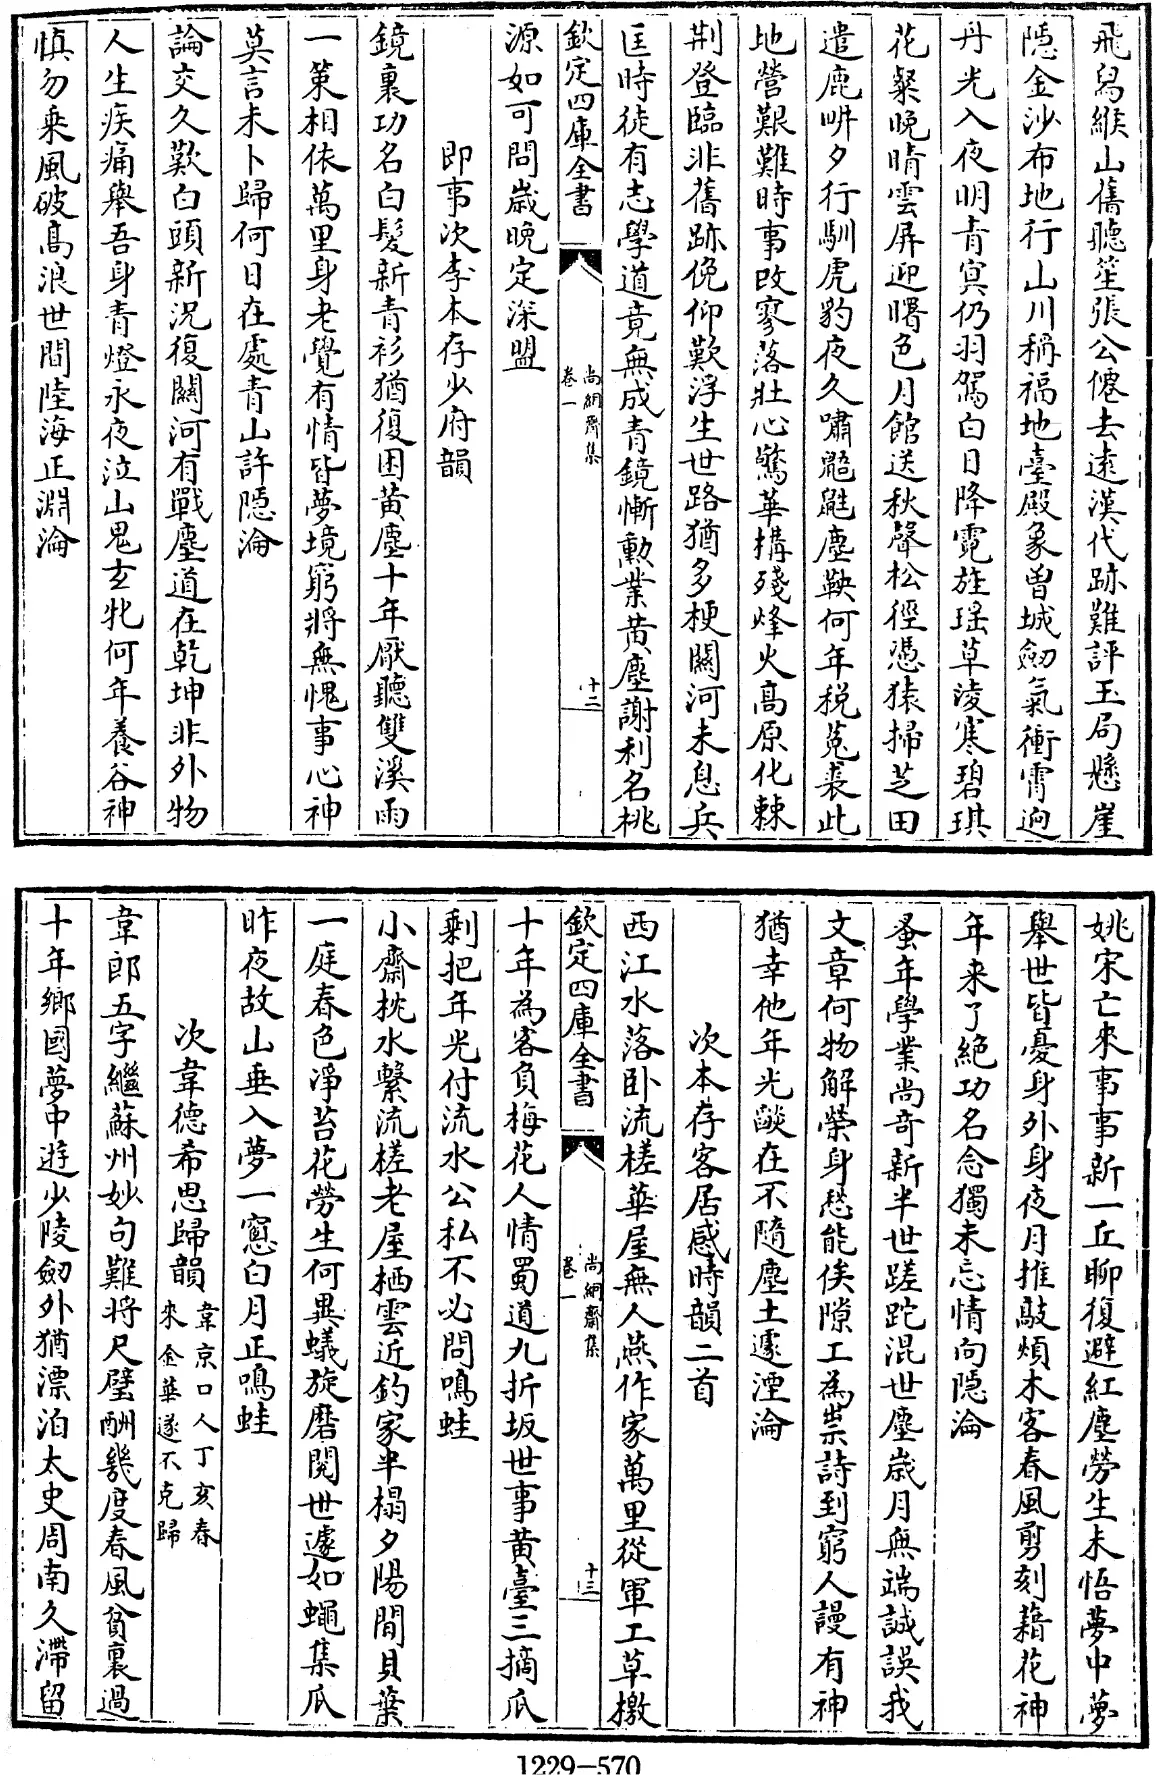 飛舄緱山舊聽笙張公僊去遠漢代跡難評玉局懸崖
隱金沙布地行山川稱福地臺殿象曾城劒氣衝霄逈
丹光入夜明青冥仍羽駕白日降霓旌瑶草淩寒碧琪
花粲晚晴雲屏迎曙色月館送秋聲松徑憑猿掃芝田
遣鹿畊夕行馴虎豹夜久嘯鼯鼪塵鞅何年税菟裘此
地營艱難時事改寥落壯心驚華搆殘烽火高原化棘
荆登臨非舊跡俛仰歎浮生世路猶多梗關河未息兵
匡時徒有志學道竟無成青鏡慚勳業黄塵謝利名桃
欽定四庫全書
尚絅齋集
卷一
十二
源如可問歲晚定深盟
即事次李本存少府韻
鏡裏功名白髮新青衫猶復困黄塵十年厭聽雙溪雨
一策相依萬里身老覺有情皆夢境窮將無愧事心神
莫言未卜歸何日在處青山許隱淪
論交久歎白頭新况復關河有戰塵道在乾坤非外物
人生疾痛舉吾身青燈永夜泣山鬼玄牝何年養谷神
慎勿乘風破髙浪世間陸海正淵淪
姚宋亡來事事新一丘聊復避紅塵勞生未悟夢中夢
舉世皆憂身外身夜月推敲煩木客春風剪刻藉花神
年来了絶功名念獨未忘情向隱淪
蚤年學業尚奇新半世蹉跎混世塵歲月無端誠誤我
文章何物解榮身愁能俟隙工為祟詩到窮人謾有神
猶幸他年光燄在不隨塵土遽湮淪
次本存客居感時韻二首
西江水落卧流槎華屋無人燕作家萬里從軍工草檄
欽定四庫全書
尚絅齋集
卷一
十三
十年為客負梅花人情蜀道九折坂世事黄臺三摘瓜
剩把年光付流水公私不必問鳴蛙
小齋枕水繫流槎老屋栖雲近釣家半榻夕陽間貝葉
一庭春色凈苔花勞生何異蟻旋磨閱世遽如蠅集瓜
昨夜故山垂入夢一窻白月正鳴蛙
次韋德希思歸韻韋京口人丁亥春來金華遂不克歸
韋郎五字繼蘇州妙句難將尺璧酬幾度春風貧裏過
十年鄉國夢中遊少陵劒外猶漂泊太史周南久滯留
1229—570